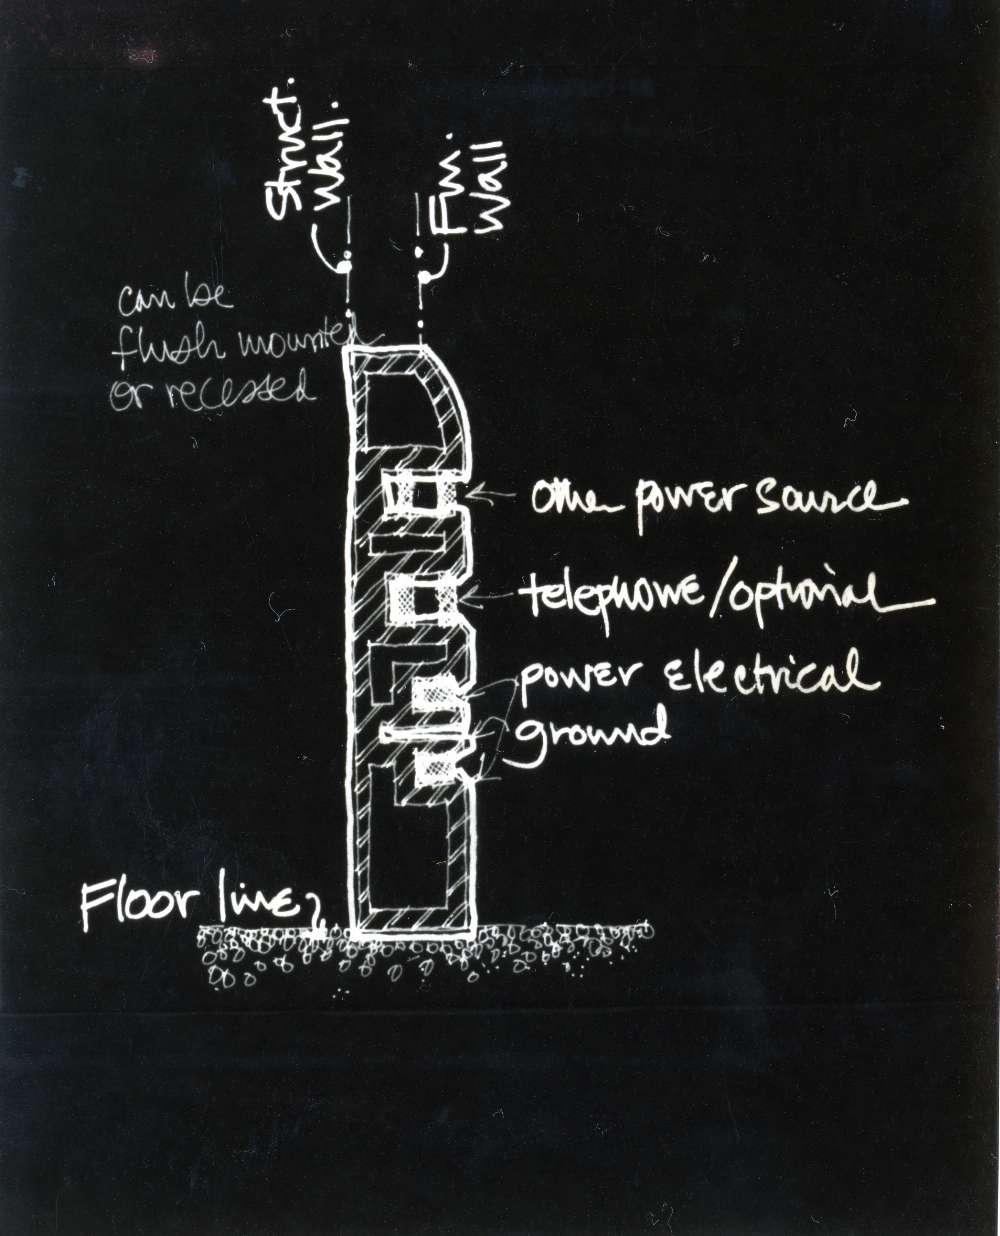 Struct.
Wall.
Fin.
Wall
can be
flush mounted
or recessed
power source
telephone/optional
power electrical
ground
Floor line